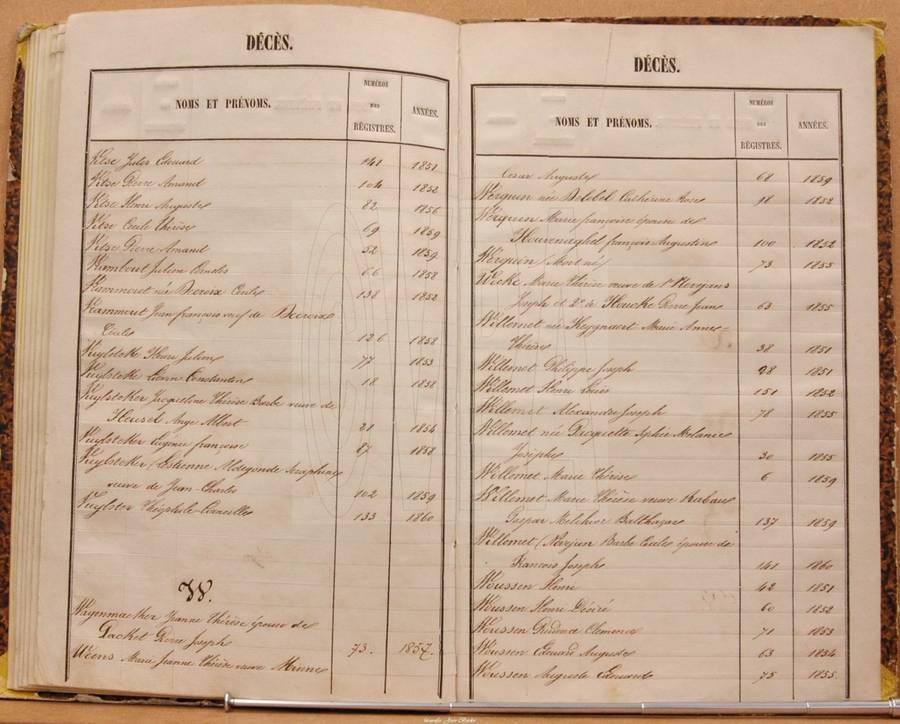 DÉCÈS.
NOMS ET PRÉNOMS. NUMÉROS DES RÉGISTRES. ANNÉES.
Jules Edouard 141 1851
Pierre Amand 104 1852
Henri Auguste 82 1856
Cécile Thérèse 69 1859
Pierre Amand 52 1859
66 1858
née Decroix Cécile 138 1852
Jean françois veuf de Decroix
Cécile 126 1858
Vuylsteke Henri 77 1853
Vuylsteke Constantin 18 1858
Vuylsteker Jacqueline Thérèse Barbe veuve de
Ange Albert 21 1854
Vuylsteker Eugénie françoise 87 1858
Vuylsteker Estienne Aldegonde Séraphine
veuve de Jean Charles 102 1859
Théophile Corneille 133 1860
W.
Waÿenmacker Jeanne Thérèse épouse de
Packet Pierre Joseph 73. 1857
Weens Marie Jeanne Thérèse veuve Minne
DÉCÈS.
NOMS ET PRÉNOMS. NUMÉROS DES RÉGISTRES. ANNÉES.
César Auguste 68 1859
Werquin née Delobel Catherine Rose 98 1852
Werquin Marie françoise épouse de
françois Augustin 100 1852
Werquin (Mort né) 73 1855
Marie Thérèse veuve de
Joseph et 2° de Houcke Pierre Jean 63 1855
Willemet née Keÿgnaert Marie Anne
Thérèse 38 1851
Willemet Philippe Joseph 98 1851
Willemet Henri Louis 151 1852
Willemet Alexandre Joseph 78 1855
Willemet née Sophie Mélanie
Josèphe 30 1855
Willemet Marie Thérèse 6 1859
Willemet Marie Thérèse veuve
Gaspar Melchior Balthazar 137 1859
Willemet Barbe Cécile épouse de
Francois Joseph 141 1860
Woussen Henri 42 1851
Woussen Henri Désiré 60 1852
Woussen Clemence 71 1853
Woussen Edouard Auguste 63 1854
Woussen Auguste Edouard 75 1855